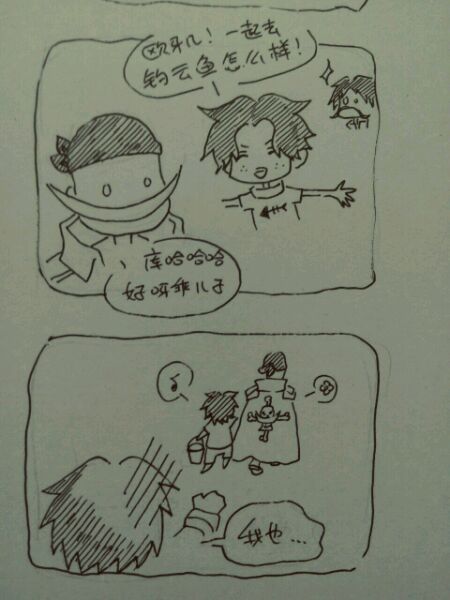 欧牙几！一起去
钓云鱼怎么样！
库哈哈哈
好呀乖儿子
我也…